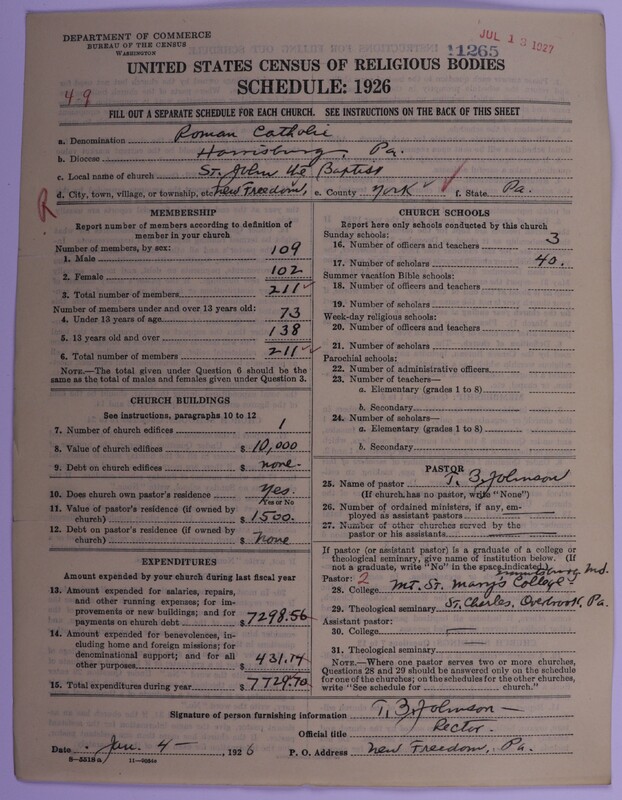 DEPARTMENT OF COMMERCE
BUREAU OF THE CENSUS
WASHINGTON
JUL 13 1927
11265
UNITED STATES CENSUS OF RELIGIOUS BODIES
SCHEDULE: 1926
4-9
FILL OUT A SEPARATE SCHEDULE FOR EACH CHURCH. SEE INSTRUCTIONS ON THE BACK OF THIS SHEET
a. Denomination Roman Catholic
b. Diocese Harrisburg, Pa.
c. Local name of church St. John the Baptist
d. City, town, village, or township, etc. New Freedom, e. County York f. State Pa.
R
MEMBERSHIP
Report number of members according to definition of
member in your church
Number of members, by sex:
1. Male 109
2. Female 102
3. Total number of members 211
Number of members under and over 13 years old:
4. Under 13 years of age 73
5. 13 years old and over 138
6. Total number of members 211
NOTE.—The total given under Question 6 should be
same as the total of males and females given under Question 3.
CHURCH BUILDINGS
See instructions, paragraphs 10 to 12
7. Number of church edifices 1
8. Value of church edifices $ 10,000
9. Debt on church edifices $ none.
10. Does church own pastor's residence Yes.
Yes or No
11. Value of pastor's residence (if owned by
church) $ 1500.
12. Debt on pastor's residence (if owned by
church) $ none
EXPENDITURES
Amount expended by your church during last fiscal year
13. Amount expended for salaries, repairs,
and other running expenses; for im-
provements or new buildings; and for
payments on church debt $ 7298.56
14. Amount expended for benevolences, in-
cluding home and foreign missions; for
denominational support; and for all
other purposes $ 431.14
15. Total expenditures during year $ 7729.70
CHURCH SCHOOLS
Report here only schools conducted by this church
Sunday schools:
16. Number of officers and teachers 3
17. Number of scholars 40.
Summer vacation Bible schools:
18. Number of officers and teachers
19. Number of scholars
Week-day religious schools:
20. Number of officers and teachers
21. Number of scholars
Parochial schools:
22. Number of administrative officers
23. Number of teachers—
a. Elementary (grades 1 to 8)
b. Secondary
24. Number of scholars—
a. Elementary (grades 1 to 8)
b. Secondary
PASTOR
25. Name of pastor T. B. Johnson
(If church has no pastor, write "None")
26. Number of ordained ministers, if any, em-
ployed as assistant pastors
27. Number of other churches served by the
pastor or his assistants
If pastor (or assistant pastor) is a graduate of a college or
theological seminary, give name of institution below. (If
not a graduate, write "No" in the space indicated.)
Pastor: 2 Emmitsburg Md.
28. College Mt. St. Mary's College
29. Theological seminary St. Charles, Overbrook, Pa.
Assistant pastor:
30. College
31. Theological seminary
NOTE.—Where one pastor serves two or more churches,
Questions 28 and 29 should be answered only on the schedule
for one of the churches; on the schedules for the other churches,
write "See schedule for church."
Signature of person furnishing information T. B. Johnson
Official title Rector.
Date Jan. 4 , 1926 P. O. Address New Freedom, Pa.
8-5518a 11-9084a